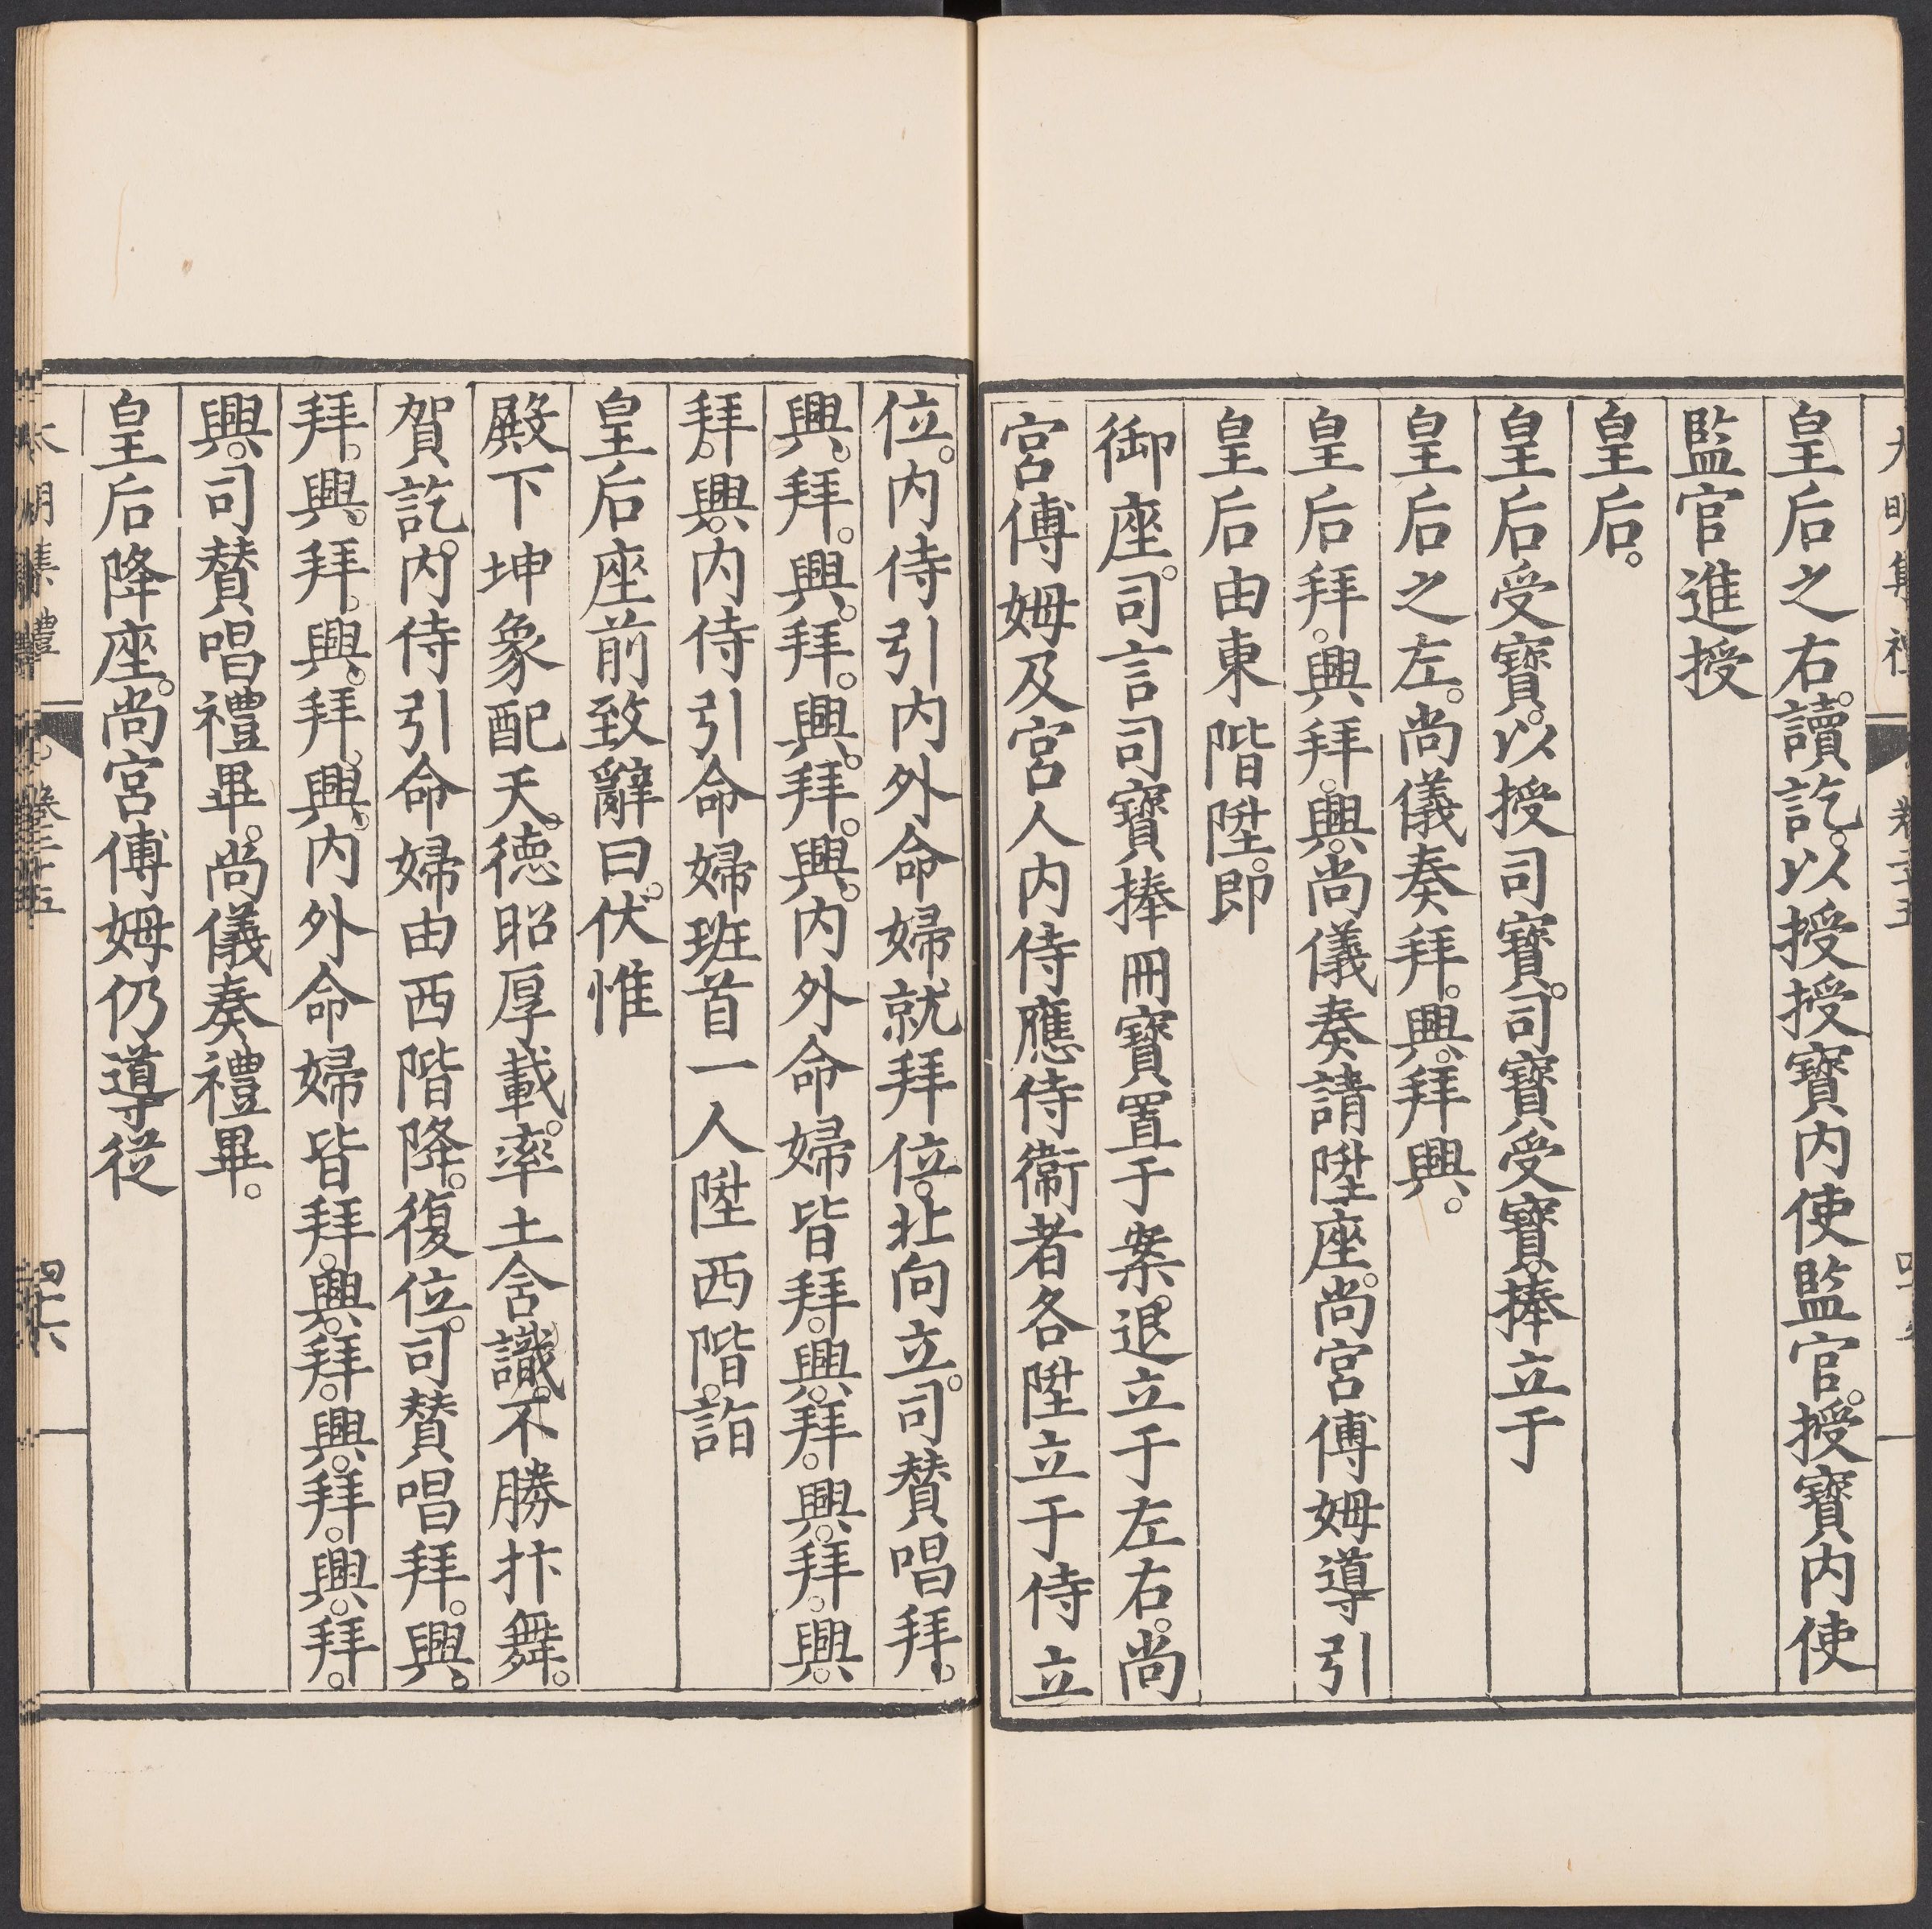 大明集禮 卷二十五
皇后之右。讀訖。以授授寶內使監官。授寶內使
監官進授
皇后。
皇后受寶。以授司寶。司寶受寶。捧立于
皇后之左。尚儀奏拜。興。拜。興。
皇后拜。興。拜。興。尚儀奏請陞座。尚宮傅姆導引
皇后由東階陞。即
御座。司言司寶捧冊寶置于案。退立于左右。尚
宮傅姆及宮人內侍應侍衞者各陞立于侍立
位。內侍引內外命婦就拜位。北向立。司贊唱拜。
興。拜。興。拜。興。拜。興。內外命婦皆拜。興。拜。興。拜。興。
拜。興。內侍引命婦班首一人陞西階。詣
皇后座前致辭曰。伏惟
殿下坤象配天。德昭厚載。率土含識。不勝抃舞。
賀訖。內侍引命婦由西階降。復位。司贊唱拜。興。
拜。興。拜。興。拜。興。內外命婦皆拜。興。拜。興。拜。興。拜。
興。司贊唱禮畢。尚儀奏禮畢。
皇后降座。尚宮傅姆仍導從
大明集禮 卷二十五 四十六